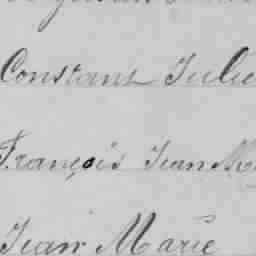 Constant Julie
François Jean Ma
Jean Marie